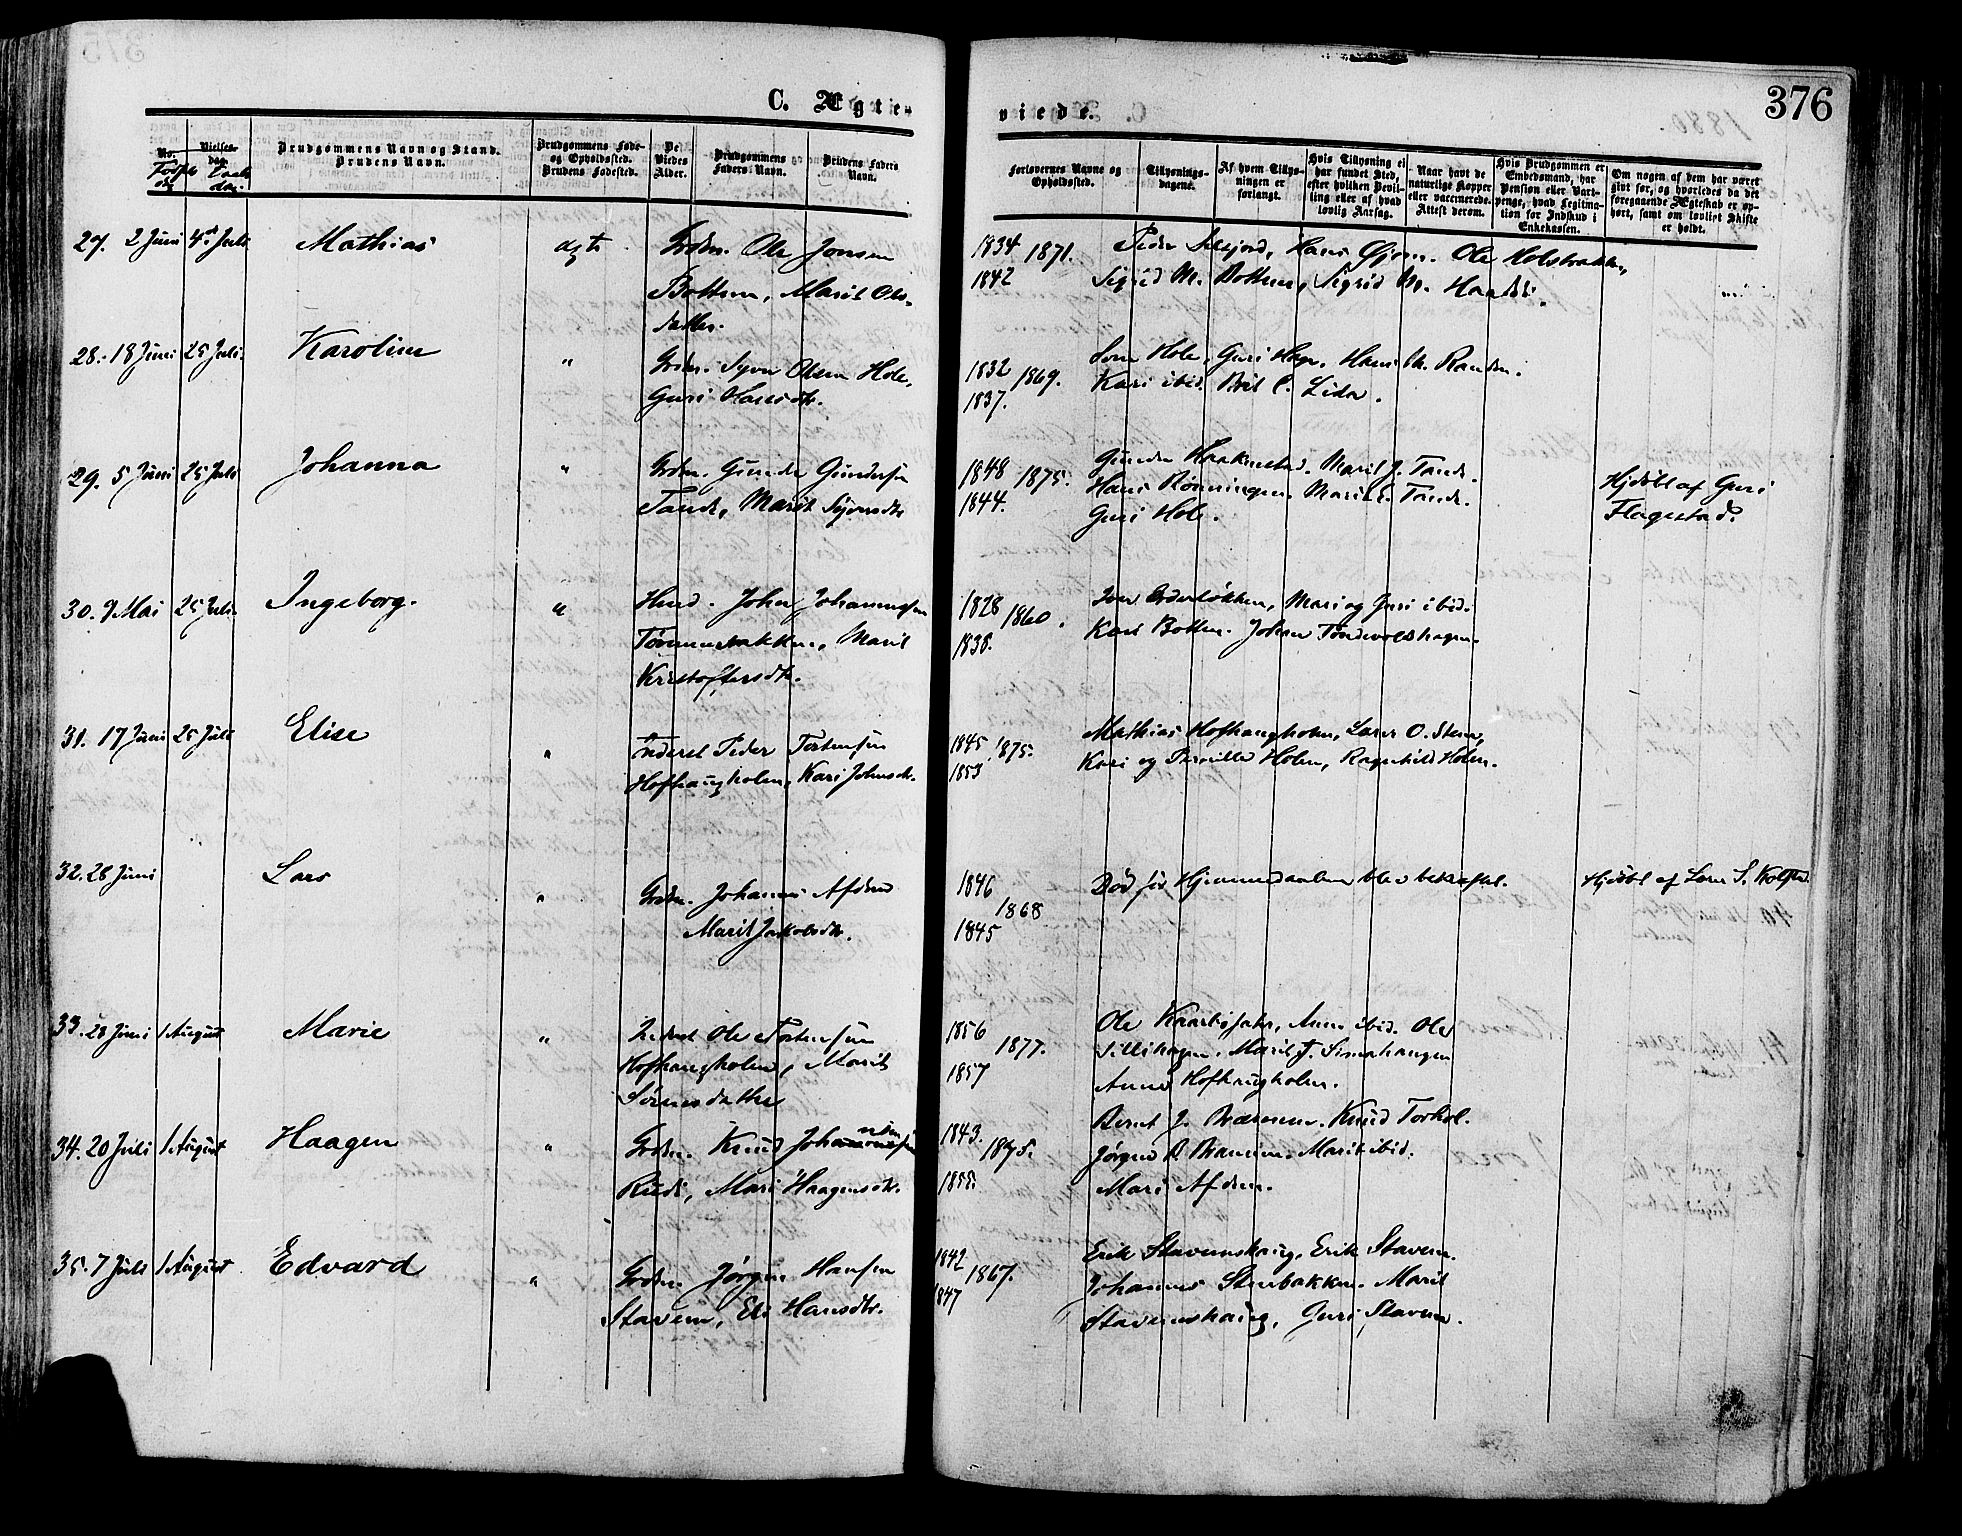 376
C. Ægte-
viede.
No.
Fødselsda
Vielses-
dag.
Daabsdag.
Brudgommens Navn og Stand.
Brudens Navn.
Brudgommens Føde-
og Opholdssted.
Brudens Fødested.
De
Viedes
Alder.
Brudgommens
Faders Navn.
Brudens Faders
Navn.
Forlovernes Navne og
Opholdssted.
Tillysnings-
dagene.
Af hvem Tillys-
ningen er
forlangt.
Hvis Tillysning ei
har fundet Sted,
efter hvilken Bevil-
ling eller af hvad
lovlig Aarsag.
Naar havt de
naturlige Kopper
eller vaccinerede.
Attest derom.
Hvis Brudgommen er
Embedsmand, har
Pension eller Vart-
penge, hvad Legitima-
tion for Indskud i
Enkekassen.
Om nogen af dem har været
gift før, og hvorledes da det
foregaaende Ægteskab er op-
hørt, samt om lovligt Skifte
er holdt.
27. 2 Juni 4de Juli Mathias ægte Grdm. Ole Jonsen
Botten, Marit Ols-
datter.
1834 1871. Peder Selsjord, Hans Øjom. Ole Holsbrakken,
1842 Sigrid M. Botten, Sigrid
28. 18 Juni 25 Juli. Karoline " Grdm. Syver Olsen Hole,
Guri Hansdtr.
1832 1869. Hole, Guri Hage, Hans M. Randen.
1837. Kari ibid. Brit C. Lider.
29. 5 Juni 25 Juli Johanna " Grdm. Gunder Gundersen
Tande, Marit Syversdtr
1848 1875. Gunder Haakenstad. Marit J. Tande.
1844. Hans Rønningen. Marit E. Tande.
Guri Hole.
Hjdøbt af Guri
Flagestad.
30. 9 Mai 25 Juli. Ingeborg. " Husmd. John Johannessen
Marit
Kristoffersdtr.
1828 1860. Iver Mari og Guri ibid.
1838. Kari Botten. Johan Tondevoldshagen.
31. 17 Juni 25 Juli Elise " Inderst Peder Tostensen
Hofhaugholen, Kari Johnsdtr.
1845 1875. Mathias Hofhaugholen, Lars O. Steen,
1853 Kari og Pernille Holen, Ragnhild Holen.
32. 28 Juni Lars " Grdm. Johannes Afdem
Marit Jakobsdtr.
1846 1868 Død før Hjemmedaaben blev bekræftet.
1845
Hjdøbt af Lars S. Kolstad.
33. 28 Juni 1 August Marie " Inderst Ole Tostensen
Hofhaugholen, Marit
Sørensdatter
1856 1877. Ole Anne ibid. Ole
1857 Sillihagen. Marit J.
Anne Hofhaugholen.
34. 20 Juli 1 August Haagen " Grdm. Knud Johannessen
Rudi, Mari Haagensdtr.
1843. 1875. Bernt J. Knud Torhol.
1855. Jørgen B. Marit ibid.
Mari Afdem.
35. 7 Juli 1 August Edvard " Grdm. Jørgen Hansen
Stavem, Eli Hansdtr.
1842 1867. Erik Stavemshaug, Erik Stavem.
1847 Johannes Stenbakken. Marit
Stavemshaug, Guri Stavem.